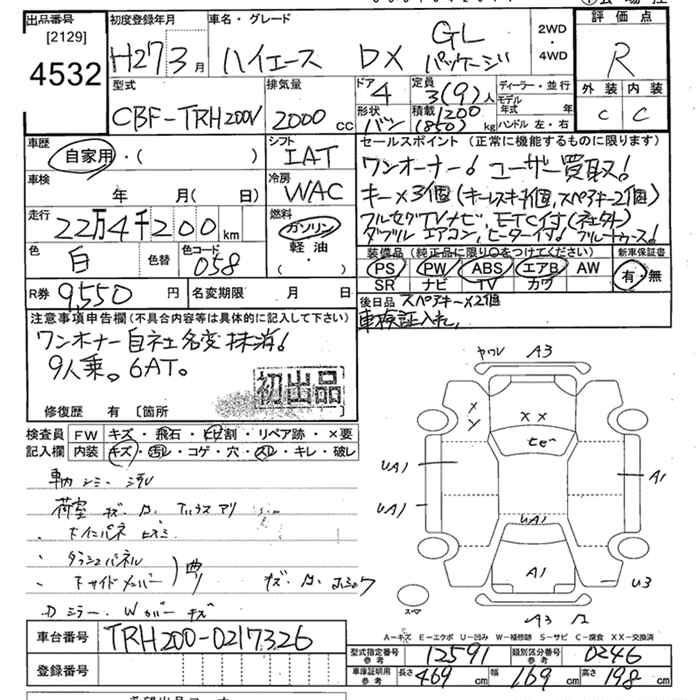 出品番号
[2129]
4532
初度登録年月
H27 3月
車名・グレード
ハイエース DX GL パッケージ
2WD
・
4WD
評価点
R
外装 内装
C C
型式
CBF-TRH200V
排気量
2000 cc
ドア
4
定員
3(9)人
形状
バン
積載
1200
(850)kg
ディーラー・並行
モデル年式 年
ハンドル 左・右
車歴
自家用・( )
シフト
IAT
車検
年 月( 日)
冷房
WAC
走行
22万4千200km
燃料
ガソリン
軽油
・( )
色
白
色替
色コード
058
R券 9,550円
名変期限 月 日
セールスポイント(正常に機能するものに限ります)
ワンオーナー! ユーザー買取!
キー×3個(キーレスキー1個,スペアキー2個)
フルセグTVナビ、ETC付(社外)
ダブルエアコン,ヒーター付! ブルートゥース!
装備品(純正品に限り○をつけてください)
PS PW ABS エアB AW
SR ナビ TV カワ
新車保証書
有・無
後日品 スペアキー×2個
車検証入れ,
注意事項申告欄(不具合内容等は具体的に記入して下さい)
ワンオーナー 自社名変抹消!
9人乗。6AT。
初出品
修復歴 有〔箇所
検査員記入欄
FW キズ・飛石・ヒビ割・リペア跡・×要
内装 キズ・汚レ・コゲ・穴・スレ・キレ・破レ
車内シミ・汚レ
荷室 キズ・凹
D ミラー・Wカバーキズ
ヤワレ A3
XX
ヒビ
X
Y
UA1
UA1
UA1
A1
A1
U3
A3
スペア
A-キズ E-エクボ U-凹み W-補修跡 S-サビ C-腐食 XX-交換済
車台番号
TRH200-0217326
登録番号
型式指定番号 参考
12591
類別区分番号 参考
0246
車庫証明用 参考
長さ 469cm
幅 169cm
高さ 198cm